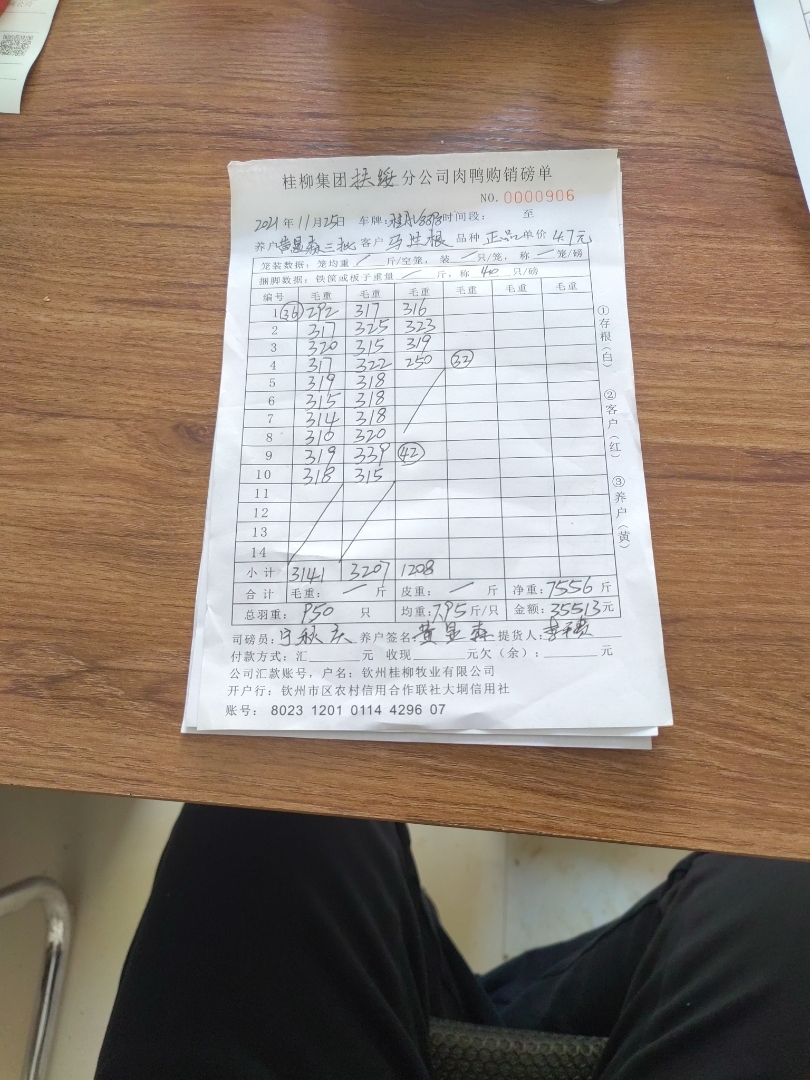 桂柳集团扶绥分公司肉鸭购销磅单
NO. 0000906
2021年11月25日 车牌: 时间段: 至
养户黄显森三批 客户马胜根 品种正品 单价4.7元
笼装数据:笼均重/斤/空笼,装/只/笼,称/笼/磅
捆脚数据:铁筐或板子重量/斤,称40只/磅
编号 毛重 毛重 毛重 毛重 毛重 毛重
1 ㊱ 292 317 316
2 317 325 323
3 320 315 319
4 317 322 250 ㉜
5 319 318
6 315 318
7 314 318
8 310 320
9 319 339 ㊷
10 318 315
11
12
13
14
小计 3141 3207 1208
合计 毛重:/斤 皮重:/斤 净重:7556斤
总羽重:950只 均重:7.95斤/只 金额:35513元
司磅员:宁秋庆 养户签名:黄显森 提货人:
付款方式:汇______元 收现______元欠(余):______元
公司汇款账号,户名:钦州桂柳牧业有限公司
开户行:钦州市区农村信用合作联社大垌信用社
账号: 8023 1201 0114 4296 07
①存根(白)
②客户(红)
③养户(黄)